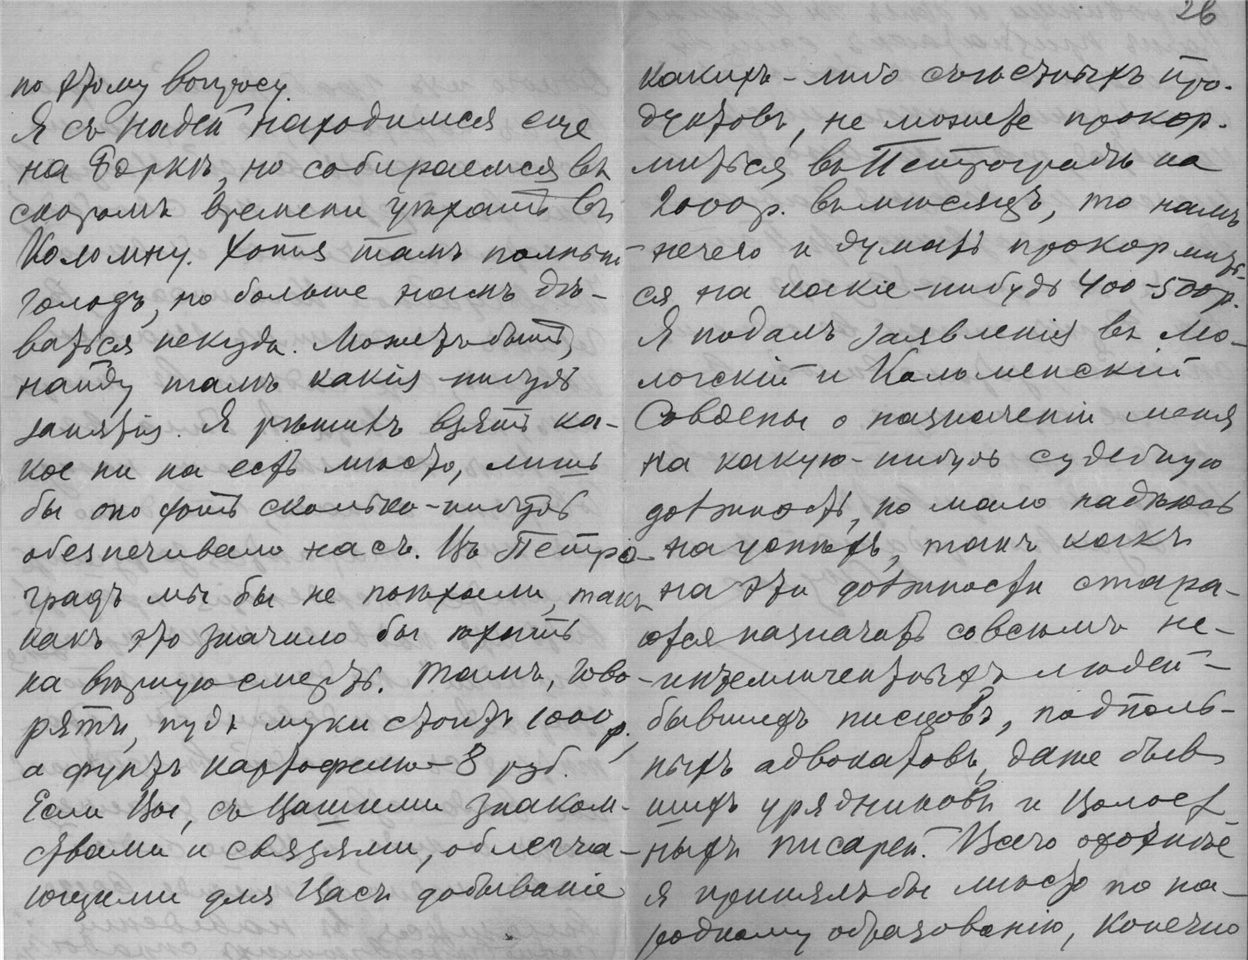 по этому вопросу.
Я съ Надей находимся еще
на Боркѣ, но собираемся въ
скоромъ времени уѣхать въ
Коломну. Хотя тамъ полный
голодъ, но больше намъ дѣ-
ваться некуда. Можетъ быть,
найду тамъ какія-нибудь
занятія. Я рѣшилъ взять ка-
кое ни на есть мѣсто, лишь
бы оно хоть сколько-нибудь
обезпечивало насъ. Въ Петро-
градъ мы бы не поѣхали, такъ
какъ это значило бы ѣхать
на вѣрную смерть. Тамъ, гово-
рятъ, пудъ муки стоитъ 1000 р.,
а фунтъ картофелю – 8 руб.
Если Вы, съ Вашими знаком-
ствами и связями, облегча-
ющими для Васъ добываніе
26
какихъ-либо съѣстныхъ про-
дуктовъ, не можете прокор-
миться въ Петроградѣ на
2000 р. въ мѣсяцъ, то намъ
нечего и думать прокормить-
ся на какіе-нибудь 400-500 р.
Я подалъ заявленія въ Мо-
логскій и Коломенскій
Совдепы о назначеніи меня
на какую-нибудь судебную
должность, но мало надѣюсь
на успѣхъ, такъ какъ
на эти должности стара-
ются назначать совсѣмъ не-
интеллигентныхъ людей –
бывшихъ писцовъ, подполь-
ныхъ адвокатовъ, даже быв
шихъ урядниковъ и волост
ныхъ писарей. Всего охотнѣе
я принялъ бы мѣсто по на-
родному образованію, конечно